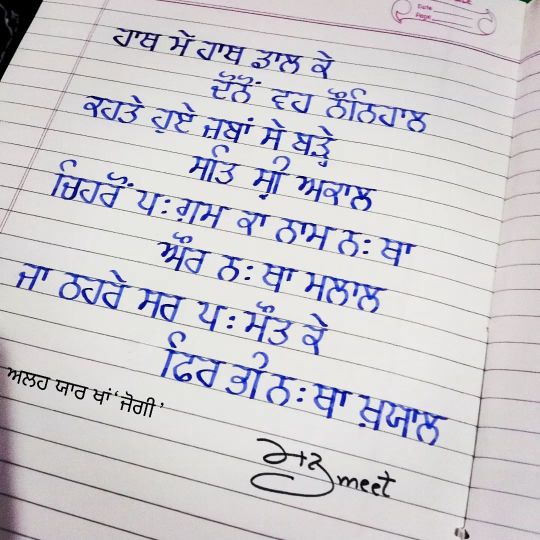 Date
Page
ਹਾਥ ਮੇਂ ਹਾਥ ਡਾਲ ਕੇ
ਦੋਨੋਂ ਵਹ ਨੌਨਿਹਾਲ
ਕਹਤੇ ਹੁਏ ਜ਼ਬਾਂ ਸੇ ਬੜ੍ਹੇ
ਸਤਿ ਸ੍ਰੀ ਅਕਾਲ
ਚਿਹਰੋਂ ਪ: ਗ਼ਮ ਕਾ ਨਾਮ ਨ: ਥਾ
ਔਰ ਨ: ਥਾ ਮਲਾਲ
ਜਾ ਠਹਰੇ ਸਰ ਪ: ਮੌਤ ਕੇ
ਫਿਰ ਭੀ ਨ: ਥਾ ਖ਼ਯਾਲ
ਅਲਹ ਯਾਰ ਖਾਂ 'ਜੋਗੀ'
meet